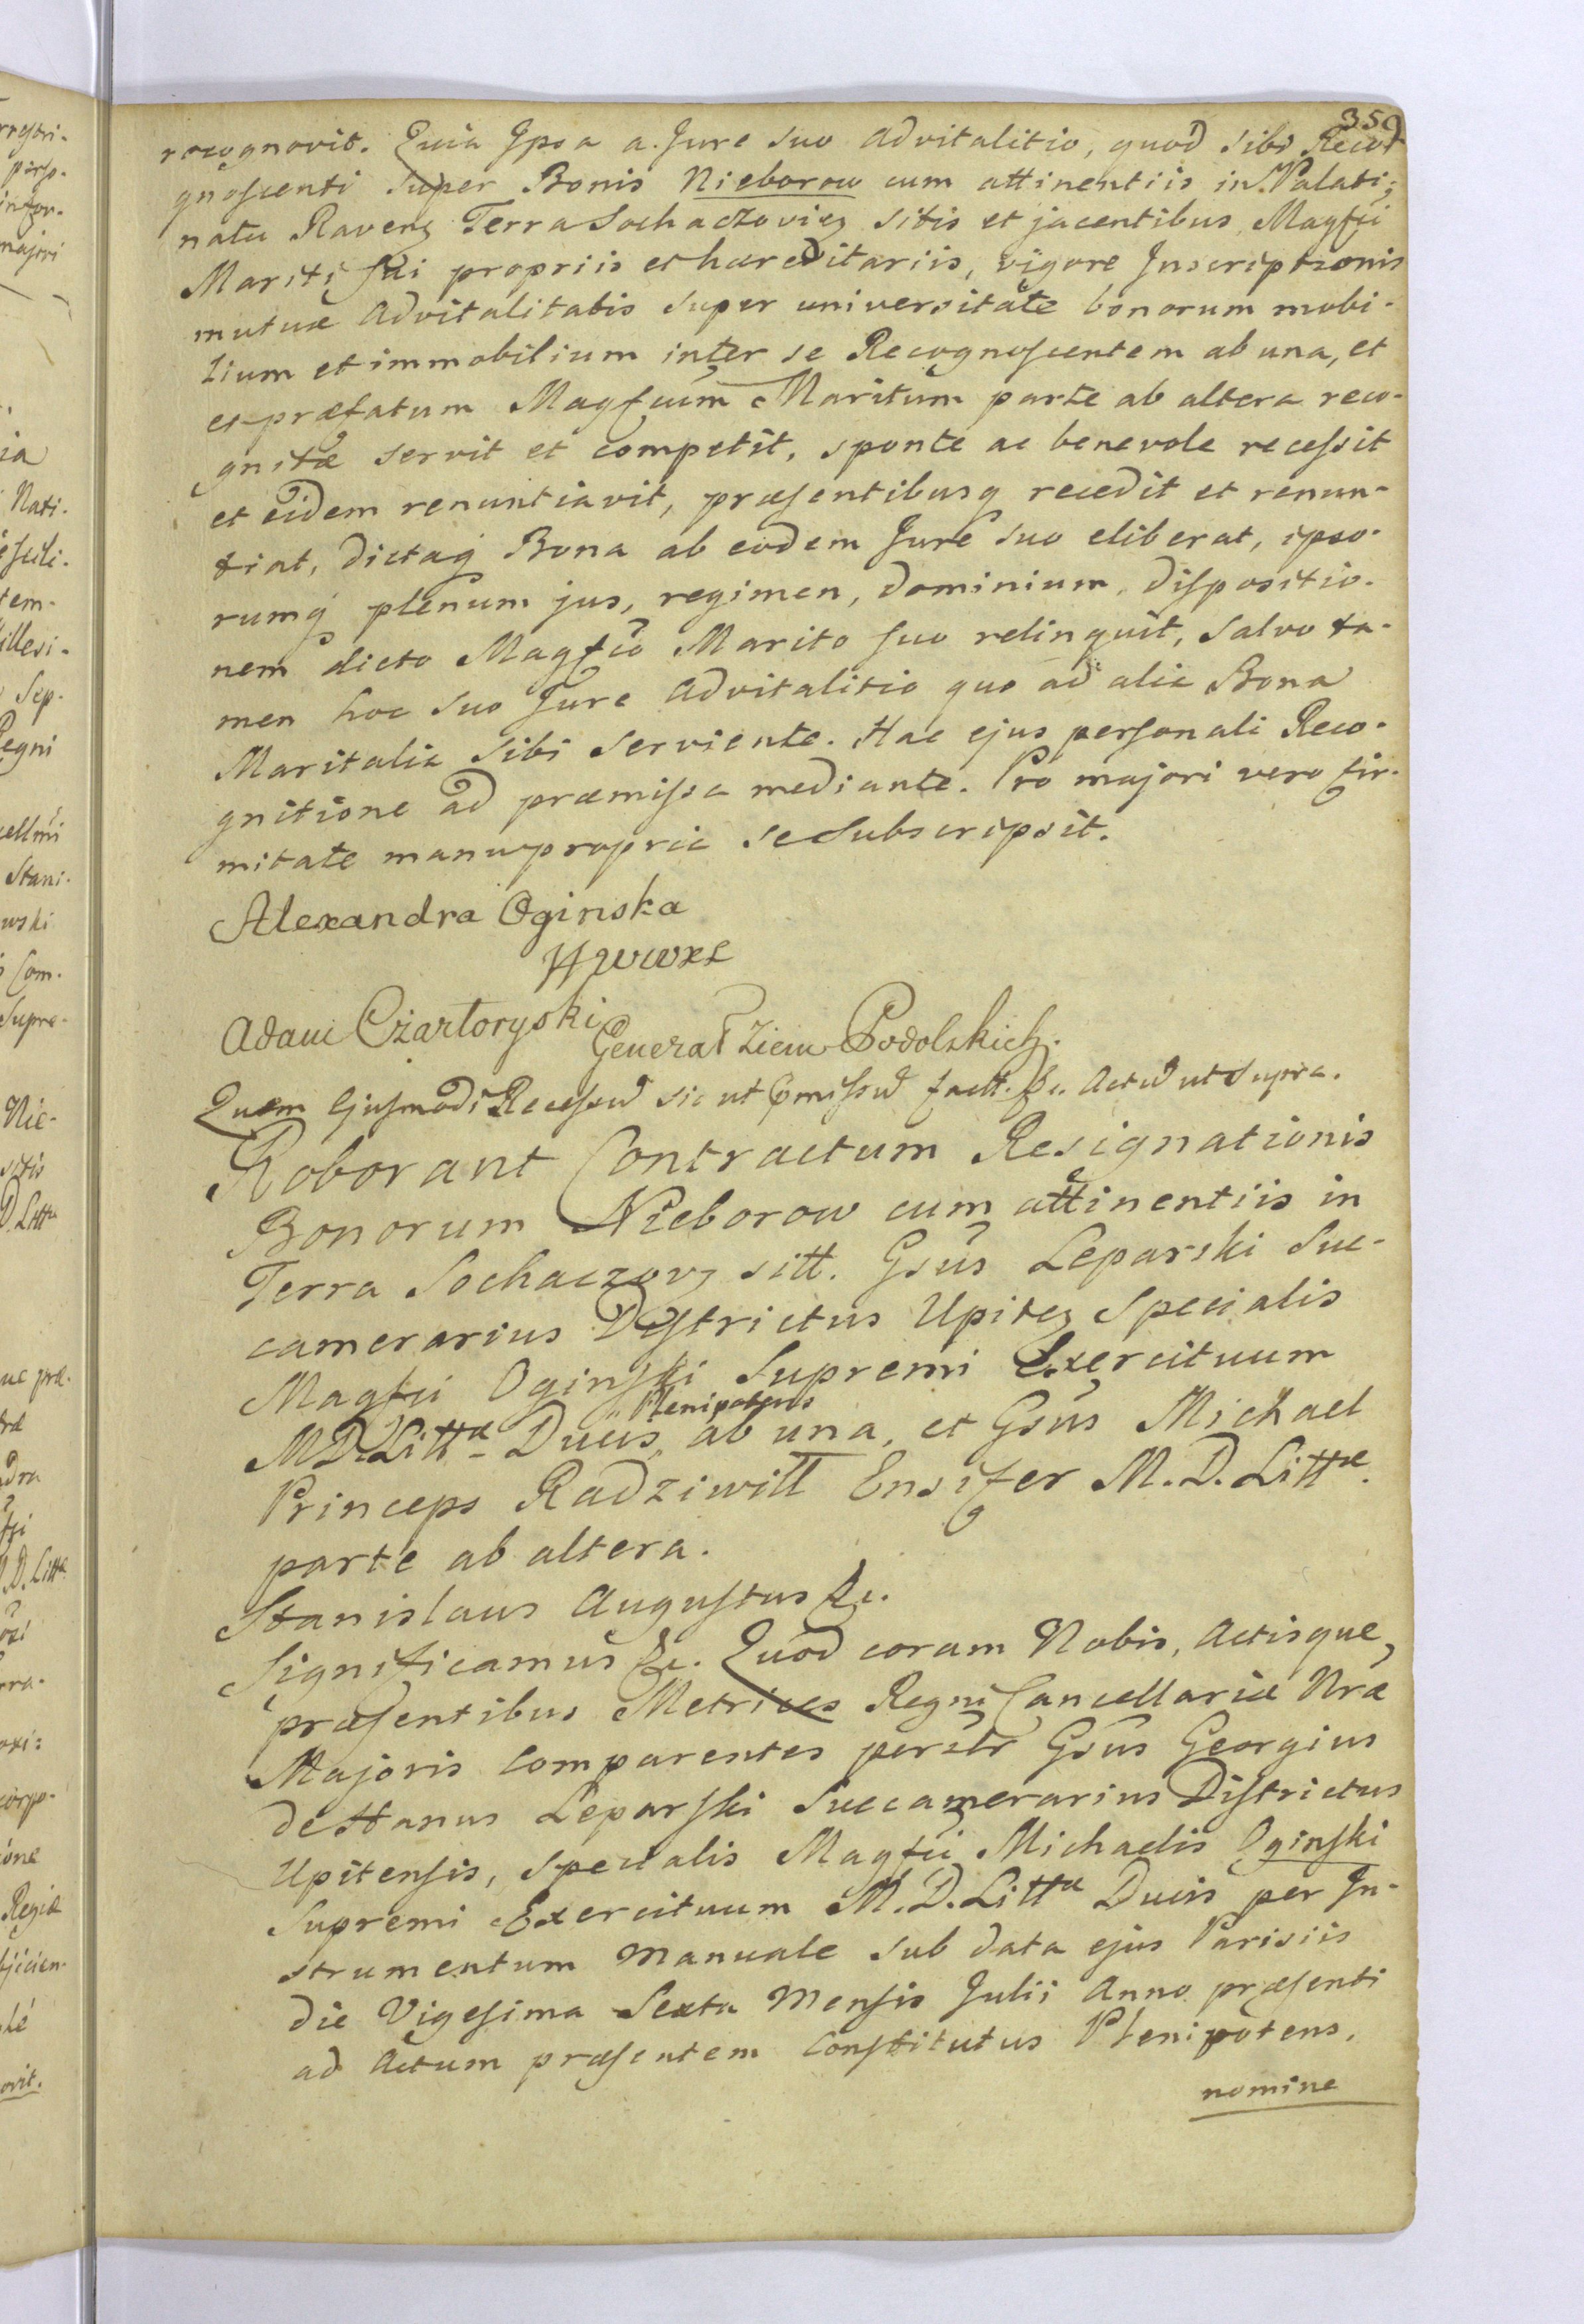 359
recognovit. Quia Ipsa a Jure suo advitalitio, quod sibi Reco-
gnoscenti super Bonis Nieborow cum attinentiis in Palati-
natu Ravenς Terra Sochaczovieς sitis et jacentibus, Magfci
Mariti sui propriis et hæreditariis, vigore Inscriptionis
mutuæ advitalitatis super universitate bonorum mobi-
lium et immobilium inter se Recognoscentem ab una, et
et præfatum Magfcum Maritum parte ab altera reco-
gnitæ servit et competit, sponte ac benevole recessit
et eidem renuntiavit, præsentibusq recedit et renun-
tiat, dictaq Bona ab eodem Jure suo eliberat, ipso-
rumq plenum jus, regimen, dominium, dispositio-
nem dicto Magfco Marito suo relinquit, salvo ta-
men hoc suo Jure advitalitio quo ad alia Bona
Maritalia sibi serviente. Hac ejus personali Reco-
gnitione ad præmissa mediante. Pro majori vero fir-
mitate manu propria se subscripsit.
Alexandra Oginska
HWWXL
Adam Czartoryski
Generał Ziem Podolskich.
Quem ejusmodi Recessũ sic ut pmissũ factt. &c. Actũ ut supra.
Roborant Contractum Resignationis
Bonorum Nieborow cum attinentiis in
Terra Sochaczovς sitt. Gsus Leparski Suc-
camerarius Districtus Upiteς Specialis
Magfci Oginski Supremi Exercituum
Plenipotens
M.D. Littæ Ducis, ab una, et Gsus Michael
Princeps Radziwiłł Ensifer M.D. Littæ.
parte ab altera.
Stanislaus Augustus &c.
Significamus &c. Quod coram Nobis, Actisque,
præsentibus Metrices Regni Cancellariæ Nræ
Majoris Comparentes perstr Gsus Georgius
de Hanus Leparski Succamerarius Districtus
Upitensis, specialis Magfci Michaelis Oginski
Supremi Exercituum M.D. Littæ Ducis per In-
strumentum Manuale sub data ejus Parisiis
die Vigesima Sexta Mensis Julii Anno præsenti
ad Actum præsentem Constitutus Plenipotens,
nomine